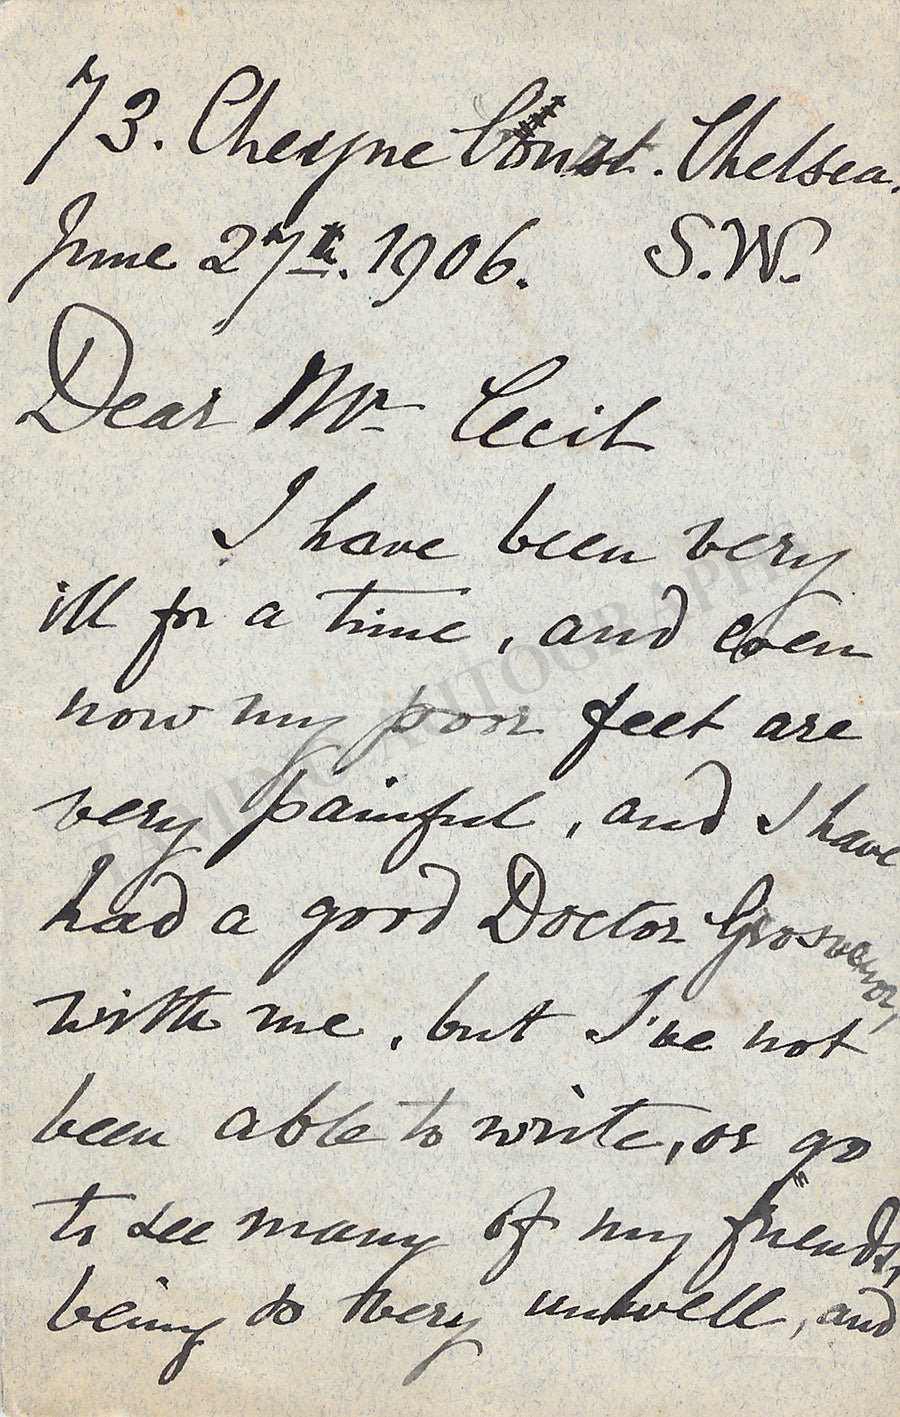 73. Cheyne Court. Chelsea.
June 27th. 1906. S.W.
Dear Mr Cecil
I have been very
ill for a time, and even
now my poor feet are
very painful, and I have
had a good Doctor Grosvenor,
with me, but I've not
been able to write, or go
to see many of my friends,
being so very unwell, and
TAMINO AUTOGRAPHS